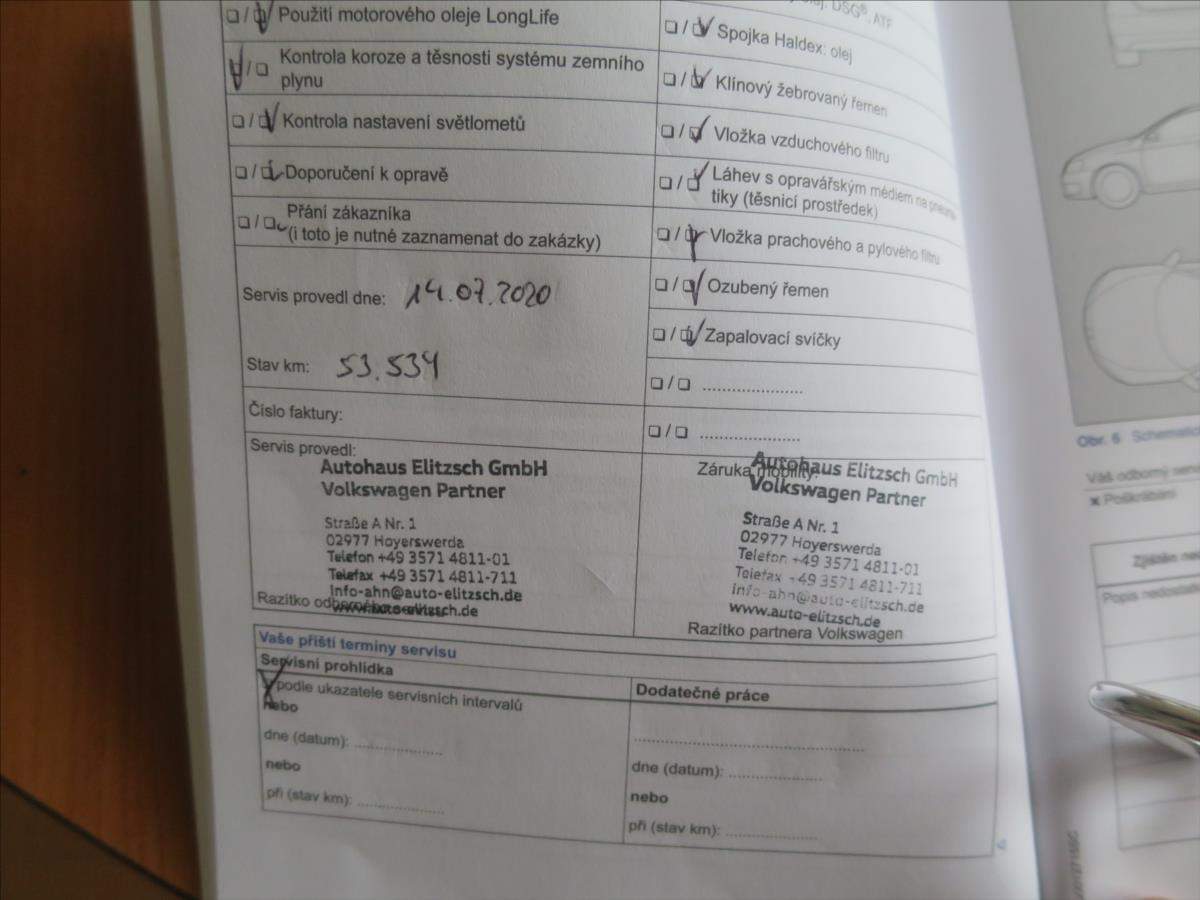 ❏ / ❏ Použití motorového oleje LongLife
❏ / ❏ Kontrola koroze a těsnosti systému zemního
plynu
❏ / ❏ Kontrola nastavení světlometů
❏ / ❏ Doporučení k opravě
❏ / ❏ Přání zákazníka
(i toto je nutné zaznamenat do zakázky)
Servis provedl dne: 14.07.2020
Stav km: 53.534
Číslo faktury:
Servis provedl:
Autohaus Elitzsch GmbH
Volkswagen Partner
Straße A Nr. 1
02977 Hoyerswerda
Telefon +49 3571 4811-01
Telefax +49 3571 4811-711
info-ahn@auto-elitzsch.de
www.auto-elitzsch.de
Razítko
DSG®, ATF
❏ / ❏ Spojka Haldex: olej
❏ / ❏ Klínový žebrovaný řemen
❏ / ❏ Vložka vzduchového filtru
❏ / ❏ Láhev s opravářským médiem na pneuma-
tiky (těsnicí prostředek)
❏ / ❏ Vložka prachového a pylového filtru
❏ / ❏ Ozubený řemen
❏ / ❏ Zapalovací svíčky
❏ / ❏ .....................
❏ / ❏ .....................
Záruka mobility:
Autohaus Elitzsch GmbH
Volkswagen Partner
Straße A Nr. 1
02977 Hoyerswerda
Telefon +49 3571 4811-01
Telefax +49 3571 4811-711
info-ahn@auto-elitzsch.de
www.auto-elitzsch.de
Razítko partnera Volkswagen
Vaše příští termíny servisu
Servisní prohlídka
podle ukazatele servisních intervalů
nebo
dne (datum): ..................
nebo
při (stav km): ..................
Dodatečné práce
................................................
dne (datum): ...................
nebo
při (stav km): ...................
Obr. 6
Váš odborný
Poškrábání
Popis